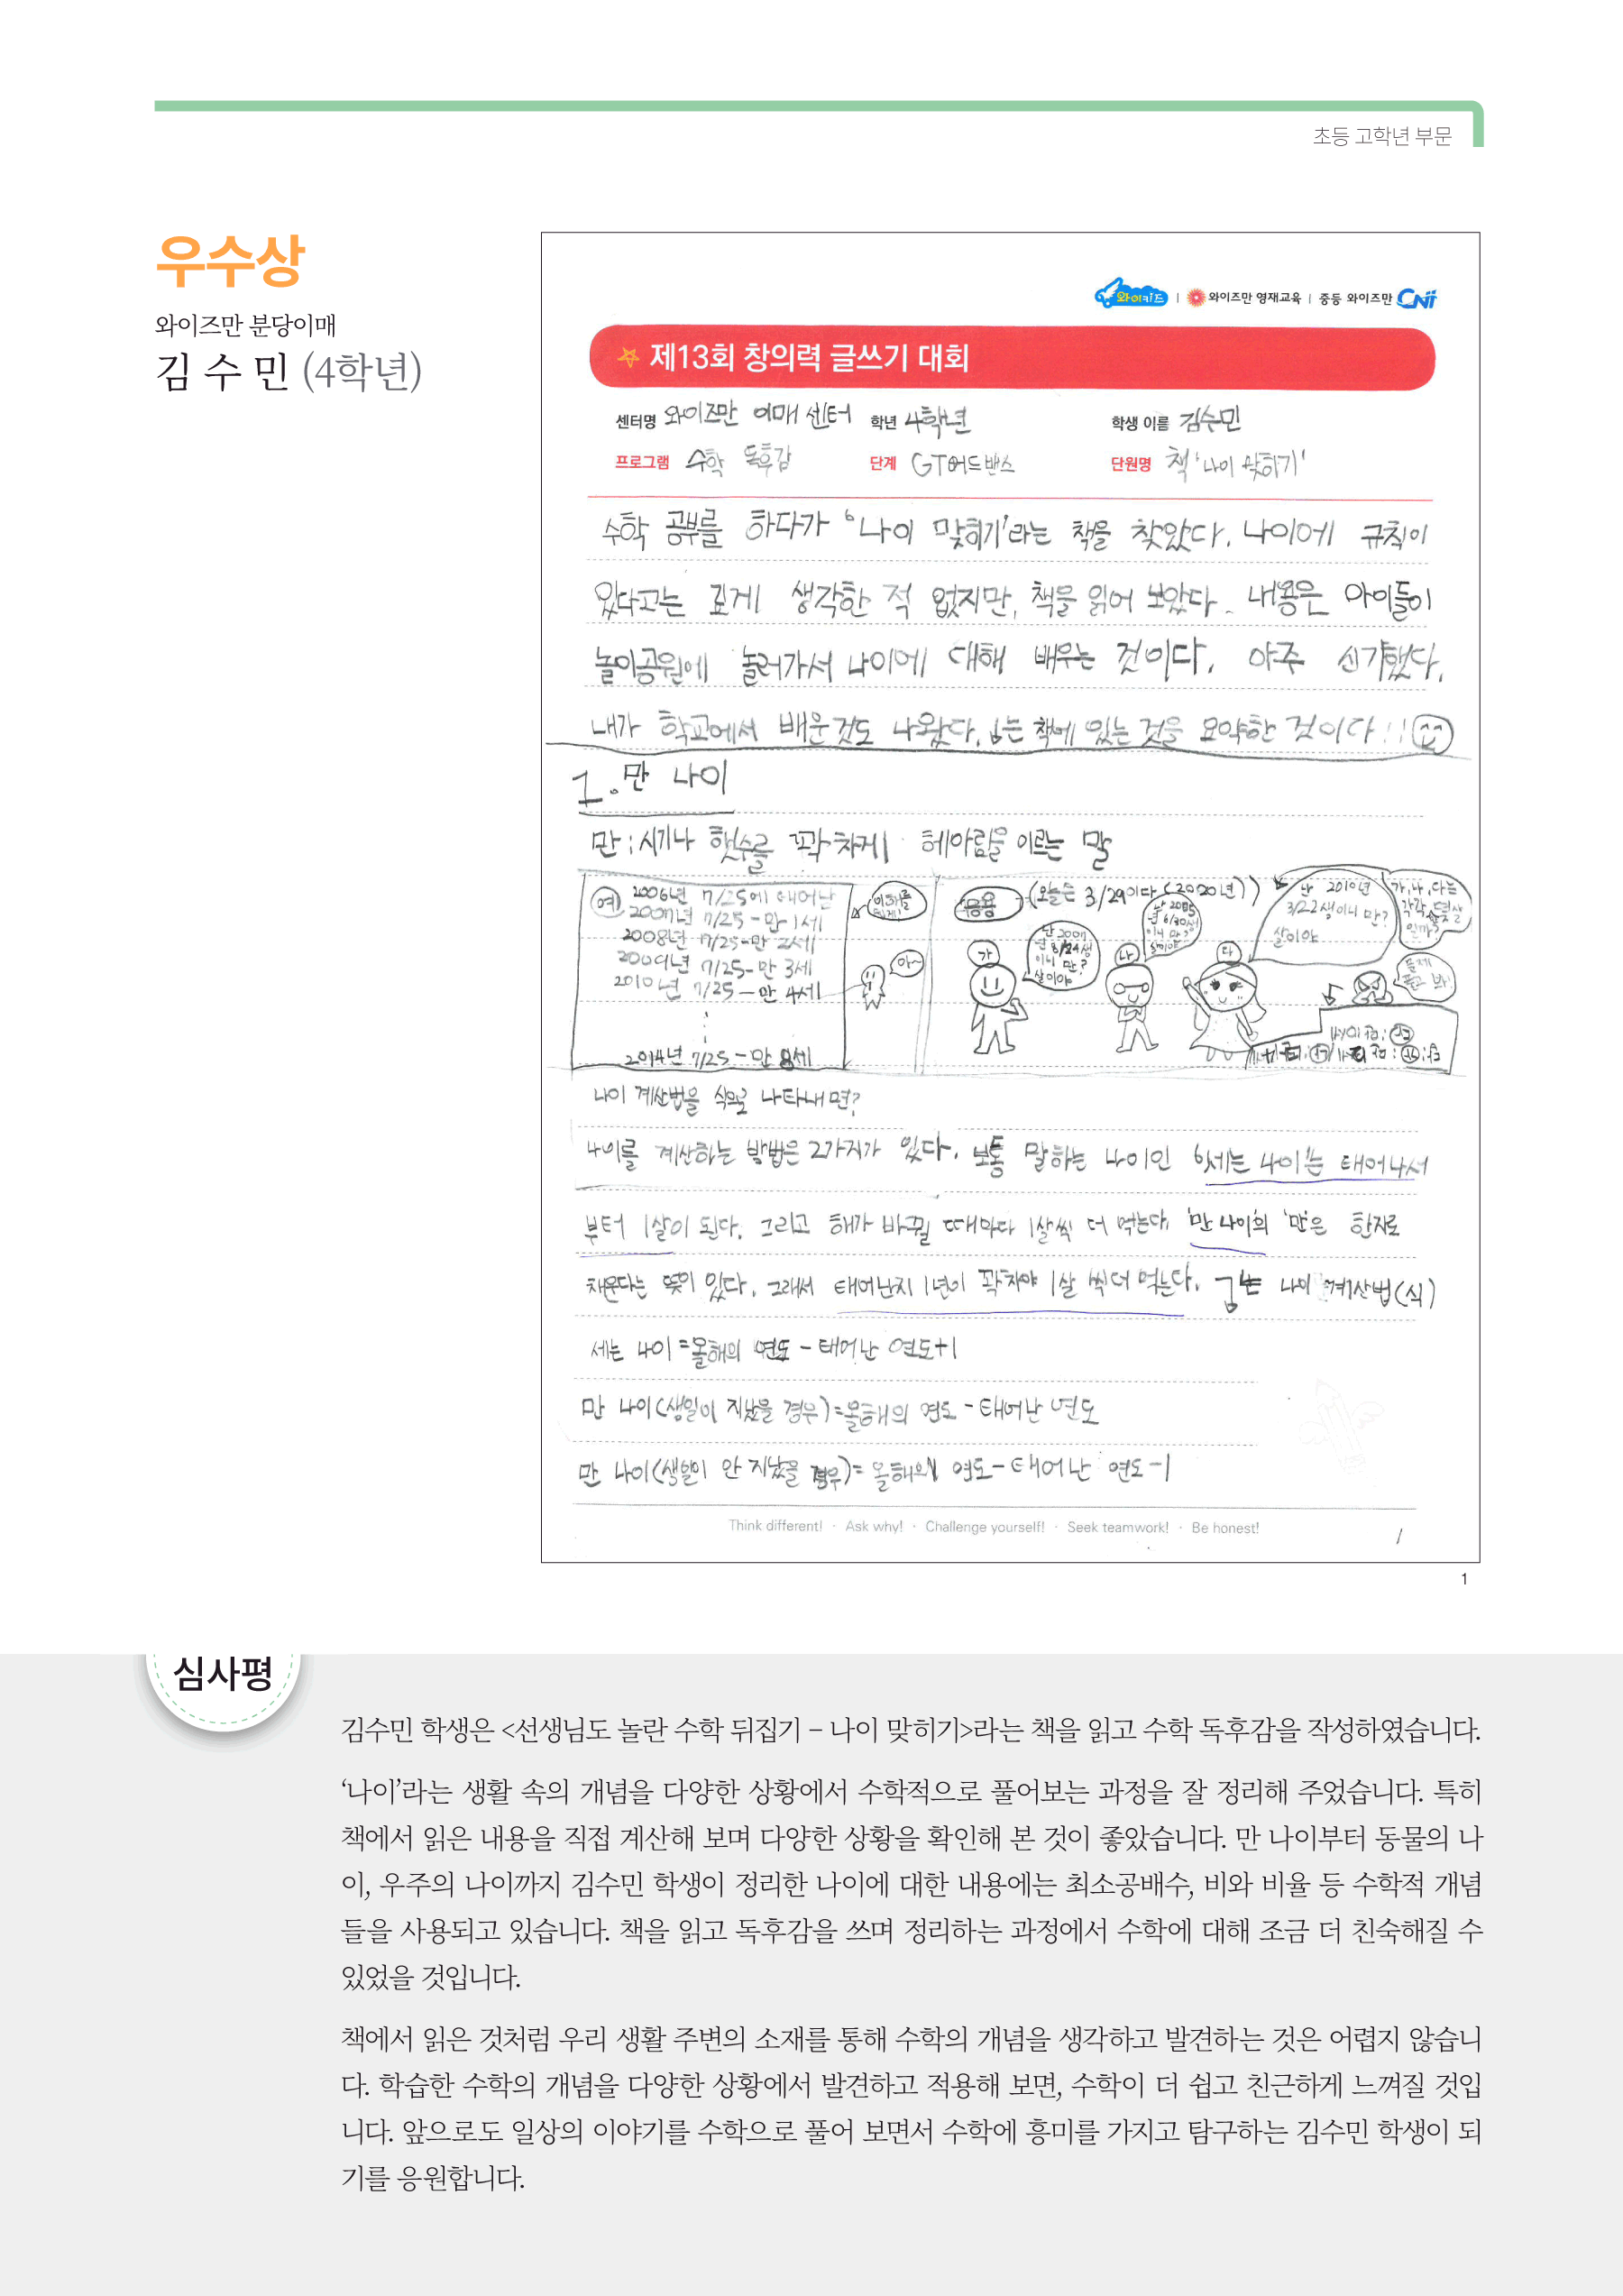 초등 고학년 부문
우수상
와이즈만 분당이매
김 수 민 (4학년)
와이키드 | 와이즈만 영재교육 | 중등 와이즈만 CNi
제13회 창의력 글쓰기 대회
센터명 와이즈만 이매 센터 학년 4학년 학생 이름 김수민
프로그램 수학 독후감 단계 GT어드밴스 단원명 책 '나이 맞히기'
수학 공부를 하다가 '나이 맞히기'라는 책을 찾았다. 나이에 규칙이
있다고는 깊게 생각한 적 없지만, 책을 읽어 보았다. 내용은 아이들이
놀이공원에 놀러가서 나이에 대해 배우는 것이다. 아주 신기했다.
내가 학교에서 배운것도 나왔다. 는 책에 있는 것을 요약한 것이다!!
1. 만 나이
만 : 시기나 햇수를 꽉 차게 헤아림을 이르는 말
예 2006년 7/25에 태어난
2007년 7/25 - 만 1세
2008년 7/25 - 만 2세
2009년 7/25 - 만 3세
2010년 7/25 - 만 4세
2014년 7/25 - 만 8세
아~
응용 (오늘은 3/29이다 (2020년))
가
난 2007년 8/24생이니 만? 살이야
나
난 2005년 6/30생이니 만? 살이야
다
난 2010년 3/22생이니 만? 살이야
가, 나, 다는 각각 몇살일까?
나이 계산법을 식으로 나타내면?
나이를 계산하는 방법은 2가지가 있다. 보통 말하는 나이인 '세는 나이'는 태어나서
부터 1살이 된다. 그리고 해가 바뀔 때마다 1살씩 더 먹는다. '만 나이'의 '만'은 한자로
채운다는 뜻이 있다. 그래서 태어난지 1년이 꽉차야 1살 씩 더 먹는다. 는 나이 계산법(식)
세는 나이 = 올해의 연도 - 태어난 연도+1
만 나이(생일이 지났을 경우) = 올해의 연도 - 태어난 연도
만 나이(생일이 안 지났을 경우) = 올해의 연도 - 태어난 연도 - 1
Think different! · Ask why! · Challenge yourself! · Seek teamwork! · Be honest!
1
1
심사평
김수민 학생은 <선생님도 놀란 수학 뒤집기 – 나이 맞히기>라는 책을 읽고 수학 독후감을 작성하였습니다.
‘나이’라는 생활 속의 개념을 다양한 상황에서 수학적으로 풀어보는 과정을 잘 정리해 주었습니다. 특히
책에서 읽은 내용을 직접 계산해 보며 다양한 상황을 확인해 본 것이 좋았습니다. 만 나이부터 동물의 나
이, 우주의 나이까지 김수민 학생이 정리한 나이에 대한 내용에는 최소공배수, 비와 비율 등 수학적 개념
들을 사용되고 있습니다. 책을 읽고 독후감을 쓰며 정리하는 과정에서 수학에 대해 조금 더 친숙해질 수
있었을 것입니다.
책에서 읽은 것처럼 우리 생활 주변의 소재를 통해 수학의 개념을 생각하고 발견하는 것은 어렵지 않습니
다. 학습한 수학의 개념을 다양한 상황에서 발견하고 적용해 보면, 수학이 더 쉽고 친근하게 느껴질 것입
니다. 앞으로도 일상의 이야기를 수학으로 풀어 보면서 수학에 흥미를 가지고 탐구하는 김수민 학생이 되
기를 응원합니다.